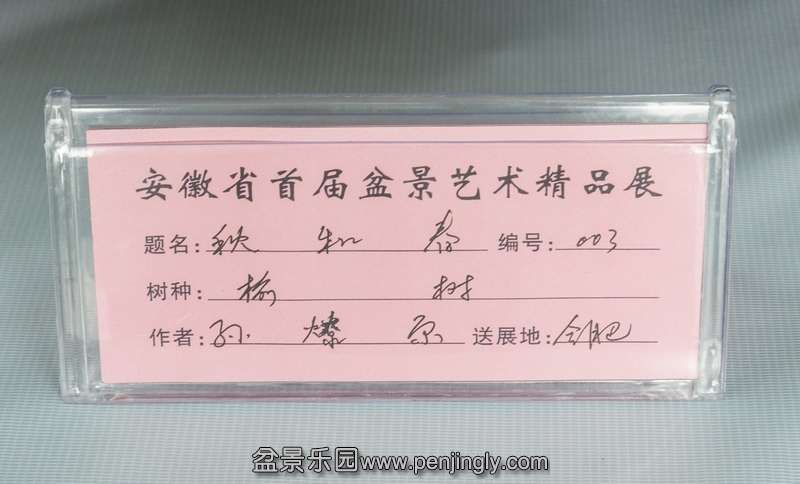 安徽省首届盆景艺术精品展
题名: 春 编号: 003
树种: 榆 树
作者: 孙 燎 原 送展地: 合肥
盆景乐园www.penjingly.com